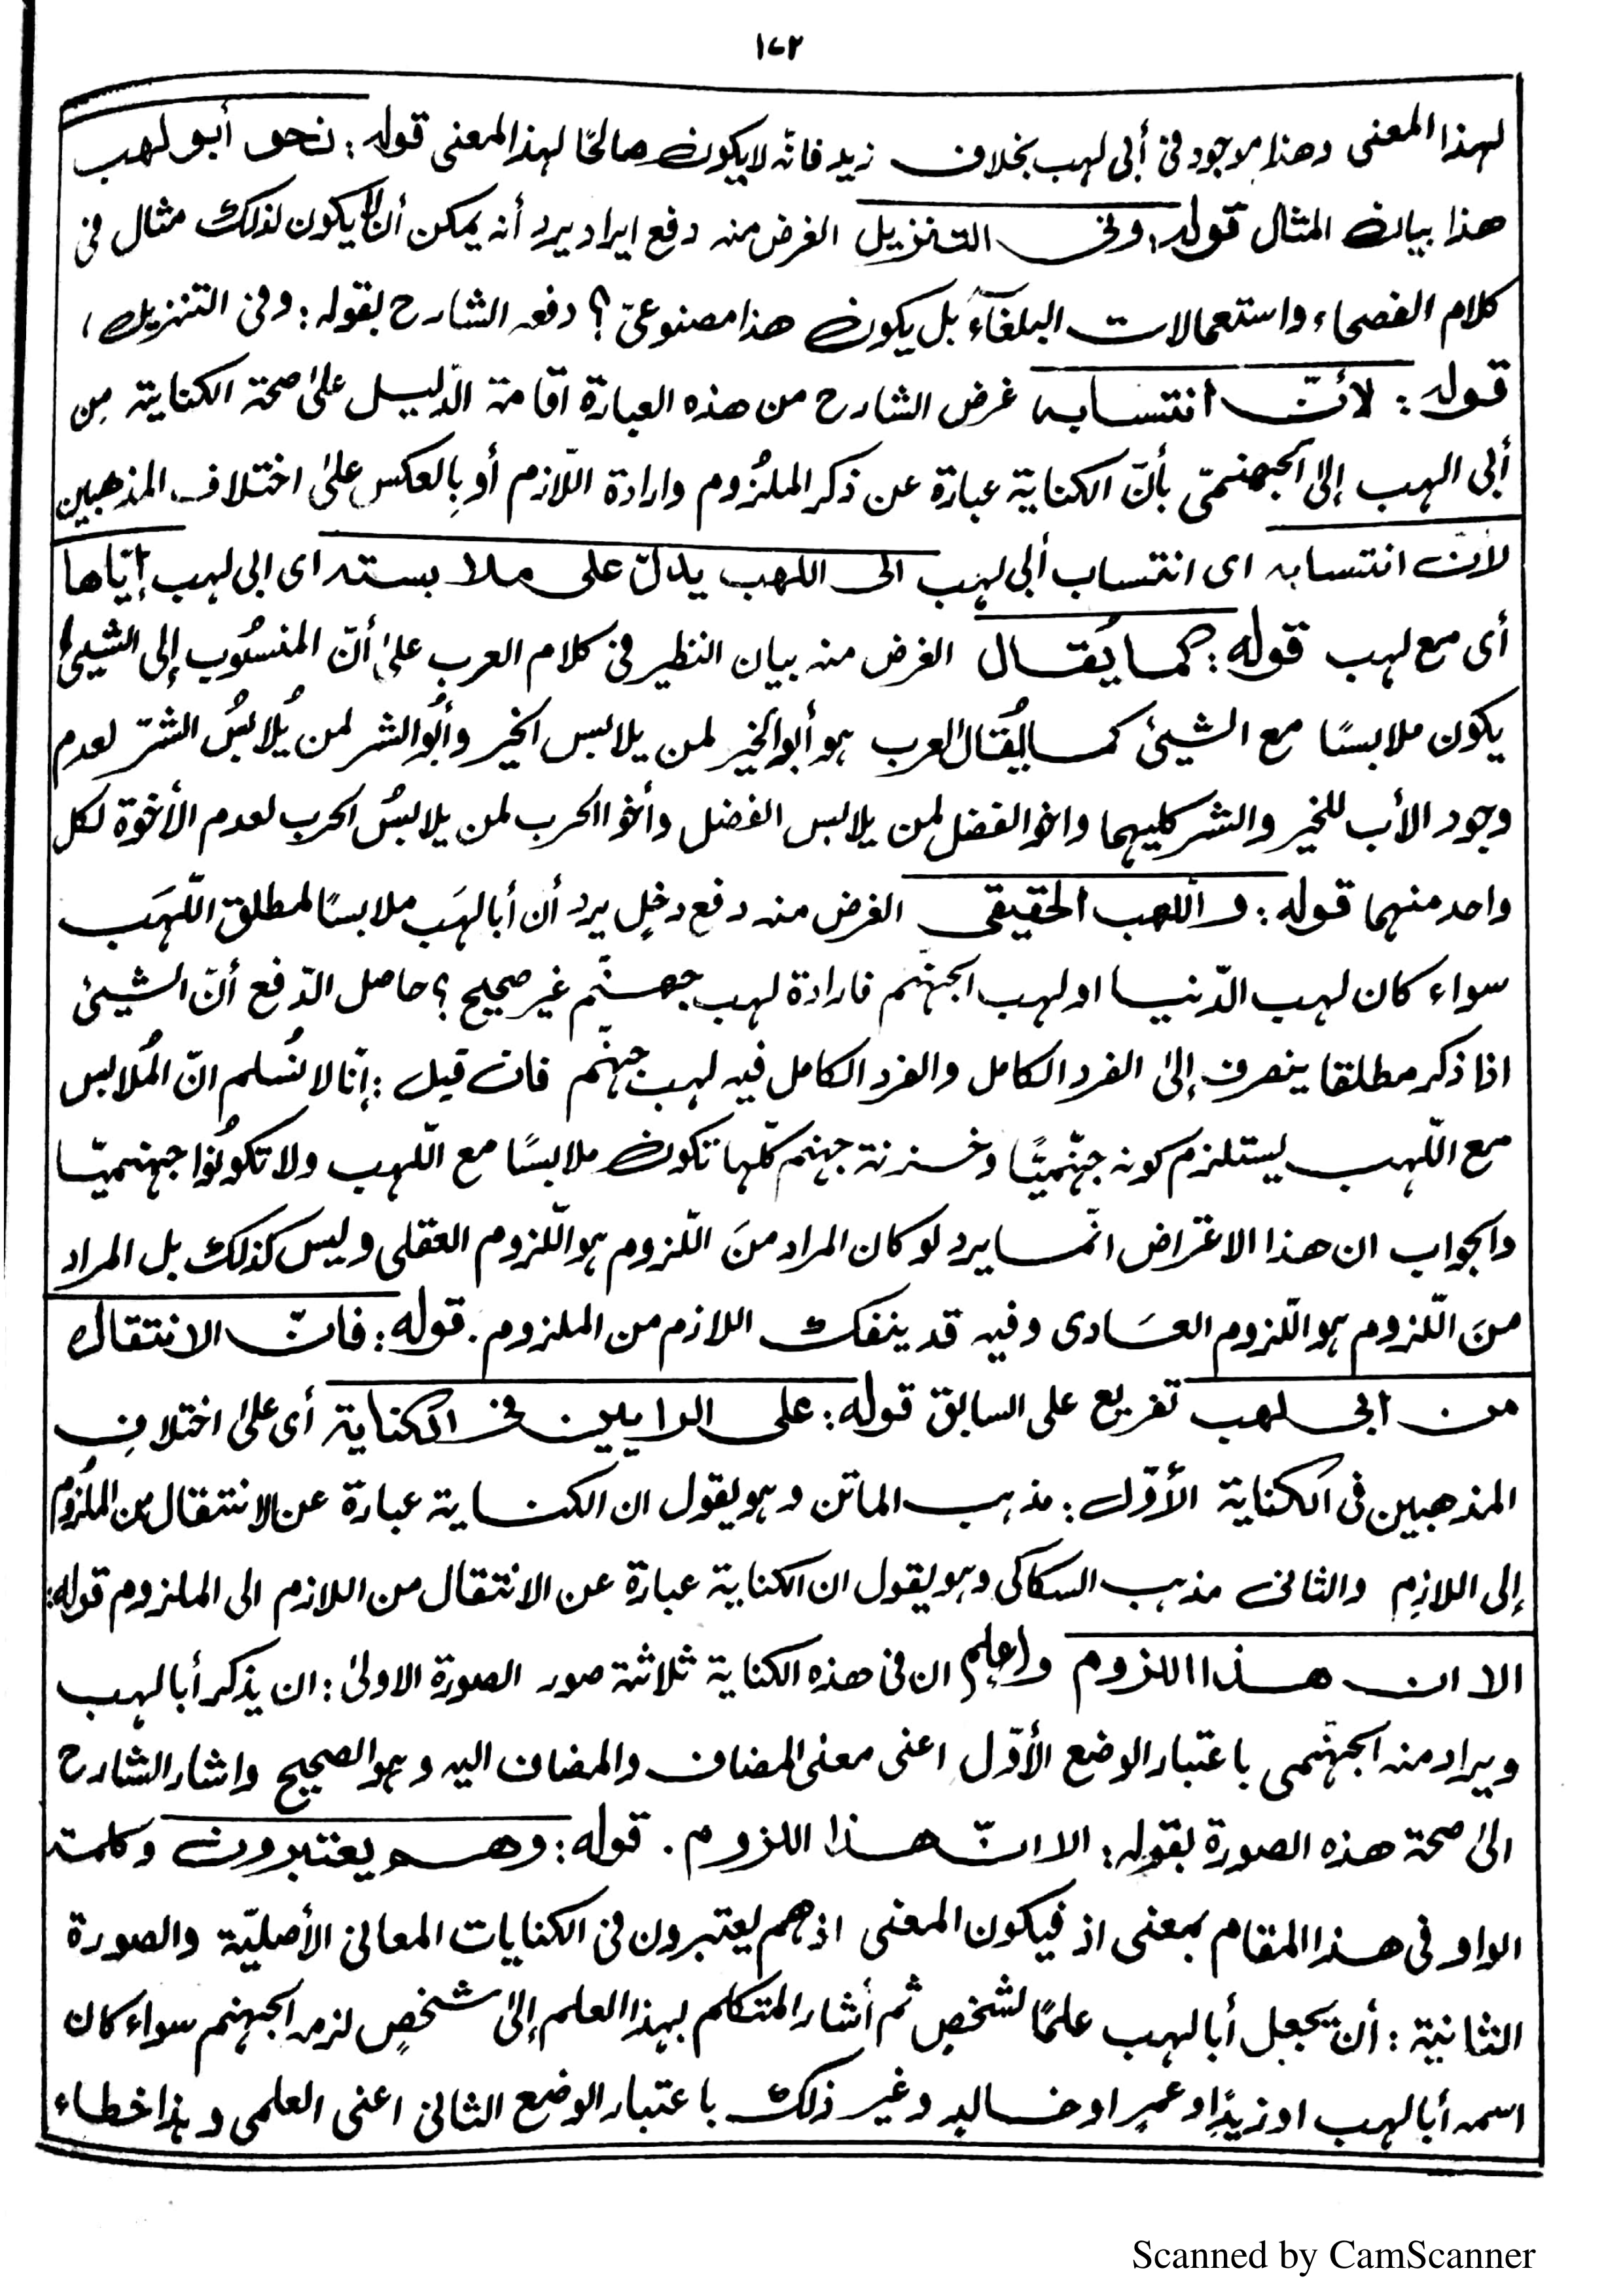 ١٧٢
لهذا المعنى وهذا موجود فى أبى لهب بخلاف زيد فانّه لايكون صالحًا لهذا المعنى قوله: نحو أبو لهب
هذا بيان المثال قوله: وفى التنزيل الغرض منه دفع ايراد يرد أنه يمكن أن لا يكون لذلك مثال فى
كلام الفصحاء واستعمالات البلغاء بل يكون هذا مصنوعىّ؟ دفعه الشارح بقوله: وفى التنزيل،
قوله: لأنّ انتسابه غرض الشارح من هذه العبارة اقامة الدّليل علىٰ صحة الكناية مِن
أبى الهب إلى الجهنمىّ بأنّ الكناية عبارة عن ذكر الملزُوم وارادة اللّازم أو بِالعكس علىٰ اختلاف المذهبين
لأنّ انتسابه اى انتساب أبى لهب الى اللهب يدلّ على ملابسته اى ابى لهب إيّاها
أى مع لهب قوله: كما يُقال الغرض منه بيان النظير فى كلام العرب علىٰ أنّ المنسُوب إلى الشيئ
يكون ملابسًا مع الشيئ كما يُقال العرب هو أبو الخير لمن يلابس الخير وأبُو الشر لمن يُلابسُ الشرّ لعدم
وجود الأب للخير والشر كليهما واخو الفضل لمن يلابس الفضل وأخوا الحرب لمن يلابسُ الحرب لعدم الأخوة لكل
واحد منهما قوله: واللهب الحقيقى الغرض منه دفع دخلٍ يرد أن أبا لهَب ملابسًا لمطلق اللّهَب
سواء كان لهب الدّنيا او لهب الجهنّم فارادة لهب جهنّم غير صحيح؟ حاصل الدّفع أنّ الشيئ
اذا ذكر مطلقا ينصرف إلىٰ الفرد الكامل والفرد الكامل فيه لهب جهنّم فان قيل: إنّا لا نُسلم انّ المُلابس
مع اللّهب يستلزم كونه جهنّميًّا وخزنة جهنم كلّها تكون ملابسًا مع اللّهب ولا تكونُوا جهنميّا
والجواب ان هذا الاعتراض انّما يرد لو كان المراد منَ اللّزوم هو اللّزوم العقلى وليس كذلك بل المراد
منَ اللّزوم هو اللّزوم العَادى وفيه قد ينفك اللازم من الملزوم. قوله: فانّ الانتقال
من ابى لهب تفريع على السابق قوله: على الرايين فى الكناية أى علىٰ اختلافِ
المذهبين فى الكناية الأوّل: مذهب الماتن وهو يقول ان الكناية عبارة عن الانتقال من الملزُوم
إلى اللازمِ والثانى مذهب السكاكى وهو يقول ان الكناية عبارة عن الانتقال من اللازم الى الملزوم قوله:
الا ان هذا اللزوم واعلم ان فى هذه الكناية ثلاثة صور الصورة الاولىٰ: ان يذكر أبا لهب
ويراد منه الجهنّمى باعتبار الوضع الأوّل اعنى معنى المضاف والمضاف اليه وهو الصحيح واشار الشارح
الىٰ صحة هذه الصورة بقوله: الا انّ هذا اللزوم. قوله: وهم يعتبرون وكلمة
الواو فى هذا المقام بمعنى اذ فيكون المعنى اذ هم يعتبرون فى الكنايات المعانى الأصليّة والصورة
الثانية: أن يجعل أبا لهب علمًا لشخصٍ ثم أشار المتكلم بهذا العلم إلىٰ شخصٍ لزمه الجهنم سواء كان
اسمه أبا لهب او زيدٍ او عمرٍ او خالدٍ وغير ذلك باعتبار الوضع الثانى اعنى العلمى وهذا خطاء
Scanned by CamScanner